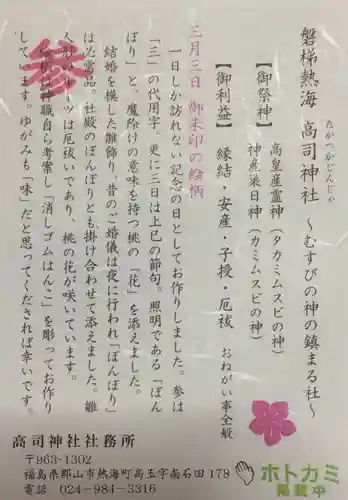 磐梯熱海 高司神社 ～むすびの神の鎮まる社～
たかつかじんじゃ
【御祭神】 高皇産霊神(タカミムスビの神)
神産巣日神(カミムスビの神)
【御利益】 縁結・安産・子授・厄祓 おねがい事全般
三月三日 御朱印の絵柄
一日しか訪れない記念の日としてお作りしました。参は
「三」の代用字。更に三日は上巳の節句。照明である「ぼん
ぼり」と、魔除けの意味を持つ桃の「花」を添えました。
結婚を模した雛飾り。昔のご婚儀は夜に行われ「ぼんぼり」
は必需品。社殿のぼんぼりとも掛け合わせて添えました。雛
人形のルーツは厄祓いであり、桃の花が咲いています。
神職自ら考案し「消しゴムはんこ」を彫ってお作り
しています。ゆがみも「味」だと思ってくだされば幸いです。
参
高司神社社務所
〒963-1302
福島県郡山市熱海町高玉字南石田178
電話 024-984-3316
ホトカミ
掲載中